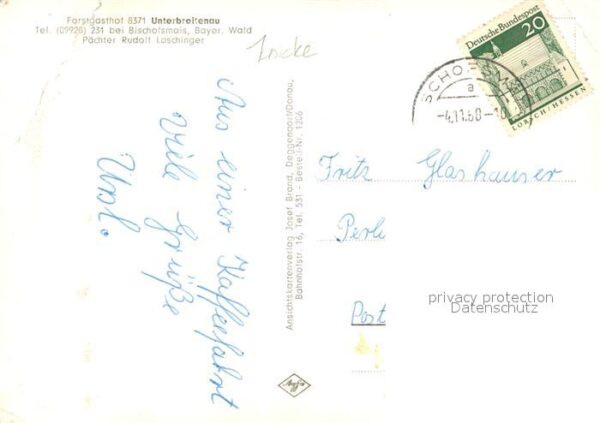 Forstgasthof 8371 Unterbreitenau
Tel. (09928) 231 bei Bischofsmais, Bayer. Wald
Pächter Rudolf Loschinger
Aus einer Kaffeefahrt
viele Grüße
Ursl.
Ansichtskartenverlag Josef Brand, Deggendorf/Donau,
Bahnhofstr. 16, Tel. 531 - Bestell-Nr. 1206
Deutsche Bundespost
20
LORSCH/HESSEN
a
-4.11.68-
Fritz Glashauser
Perl
Post
privacy protection
Datenschutz
Agfa